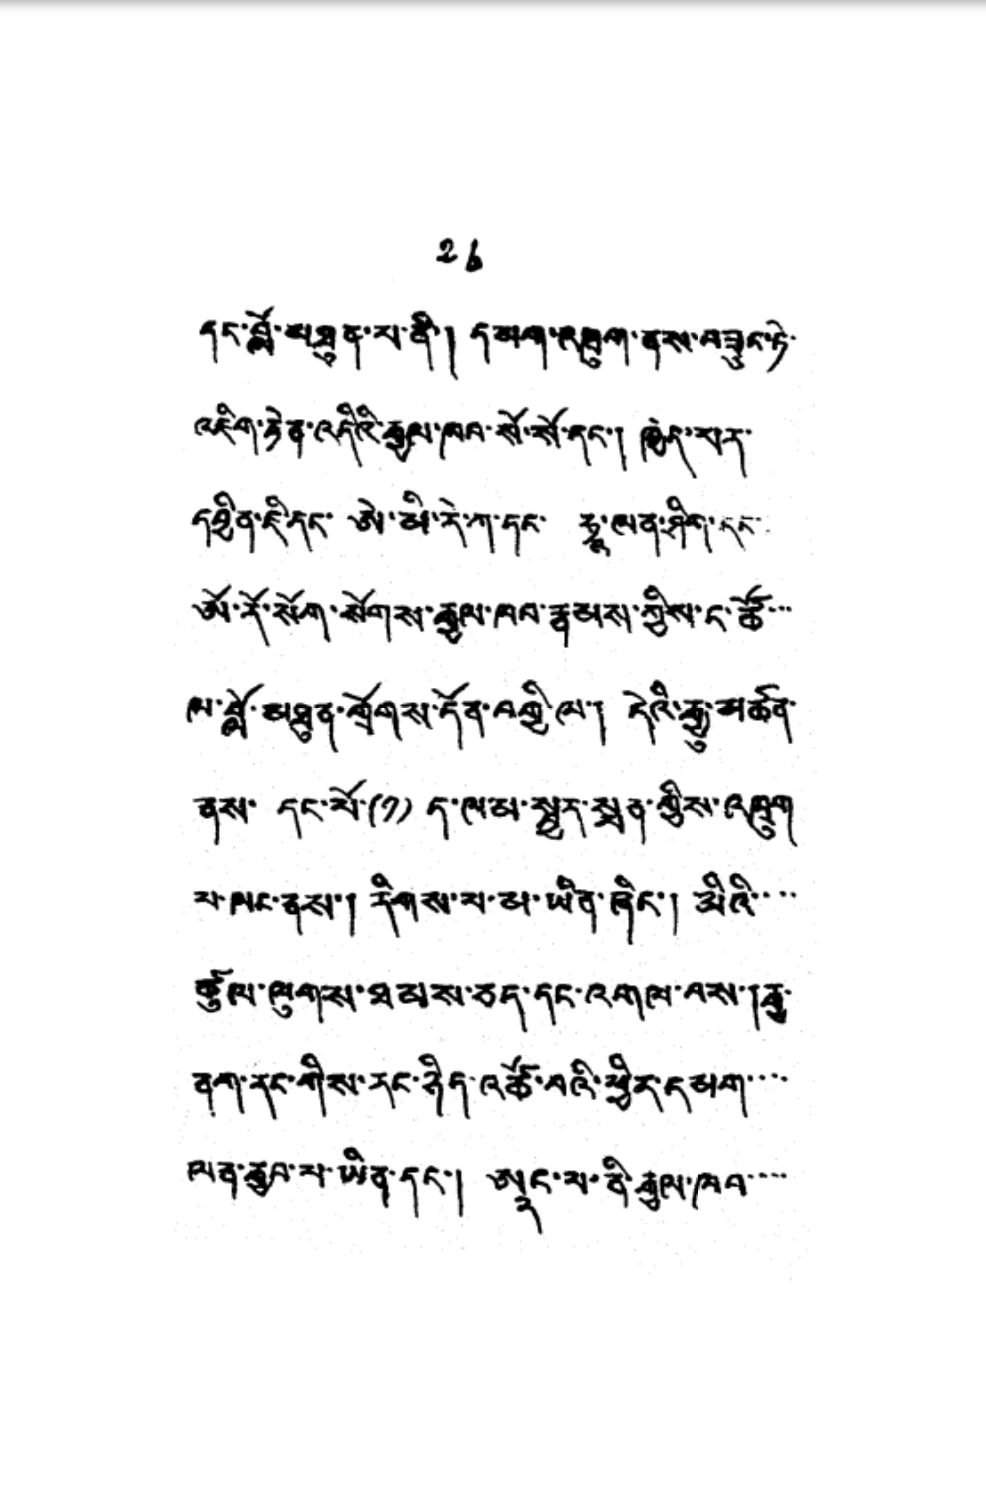 ༢༦
དང་བློ་མཐུན་པ་ནི། དམག་འཁྲུག་ནས་བཟུང་ཏེ་
འཇིག་རྟེན་འདིའི་རྒྱལ་ཁབ་སོ་སོ་དང་། ཁྱད་པར་
དབྱིན་ཇི་དང་ ཨེ་མི་རེ་ཀ་དང་ ཧྥ་རན་ཤིག་དང་
ཨོ་རོ་སོག་སོགས་རྒྱལ་ཁབ་རྣམས་ཀྱིས་ང་ཚོ་་་
ལ་བློ་མཐུན་གྲོགས་དོན་བགྱི་ལ། དེའི་རྒྱུ་མཚན་
ནས་ དང་པོ་(༡) ད་ལམ་སྔར་སྨན་གྱིས་འཁྲུག
པ་ལང་ནས་། རིགས་པ་མ་ཡིན་ཞིང་། མིའི་་་་
ཚུལ་ལུགས་ཐམས་ཅད་དང་འགལ་བས་། རྒྱ་
ནག་རང་གིས་རང་ཉིད་འཚོ་བའི་ཕྱིར་དམག་་་་
ལན་རྒྱབ་པ་ཡིན་དང་། ཨུང་པ་ནི་རྒྱལ་ཁབ་་་་